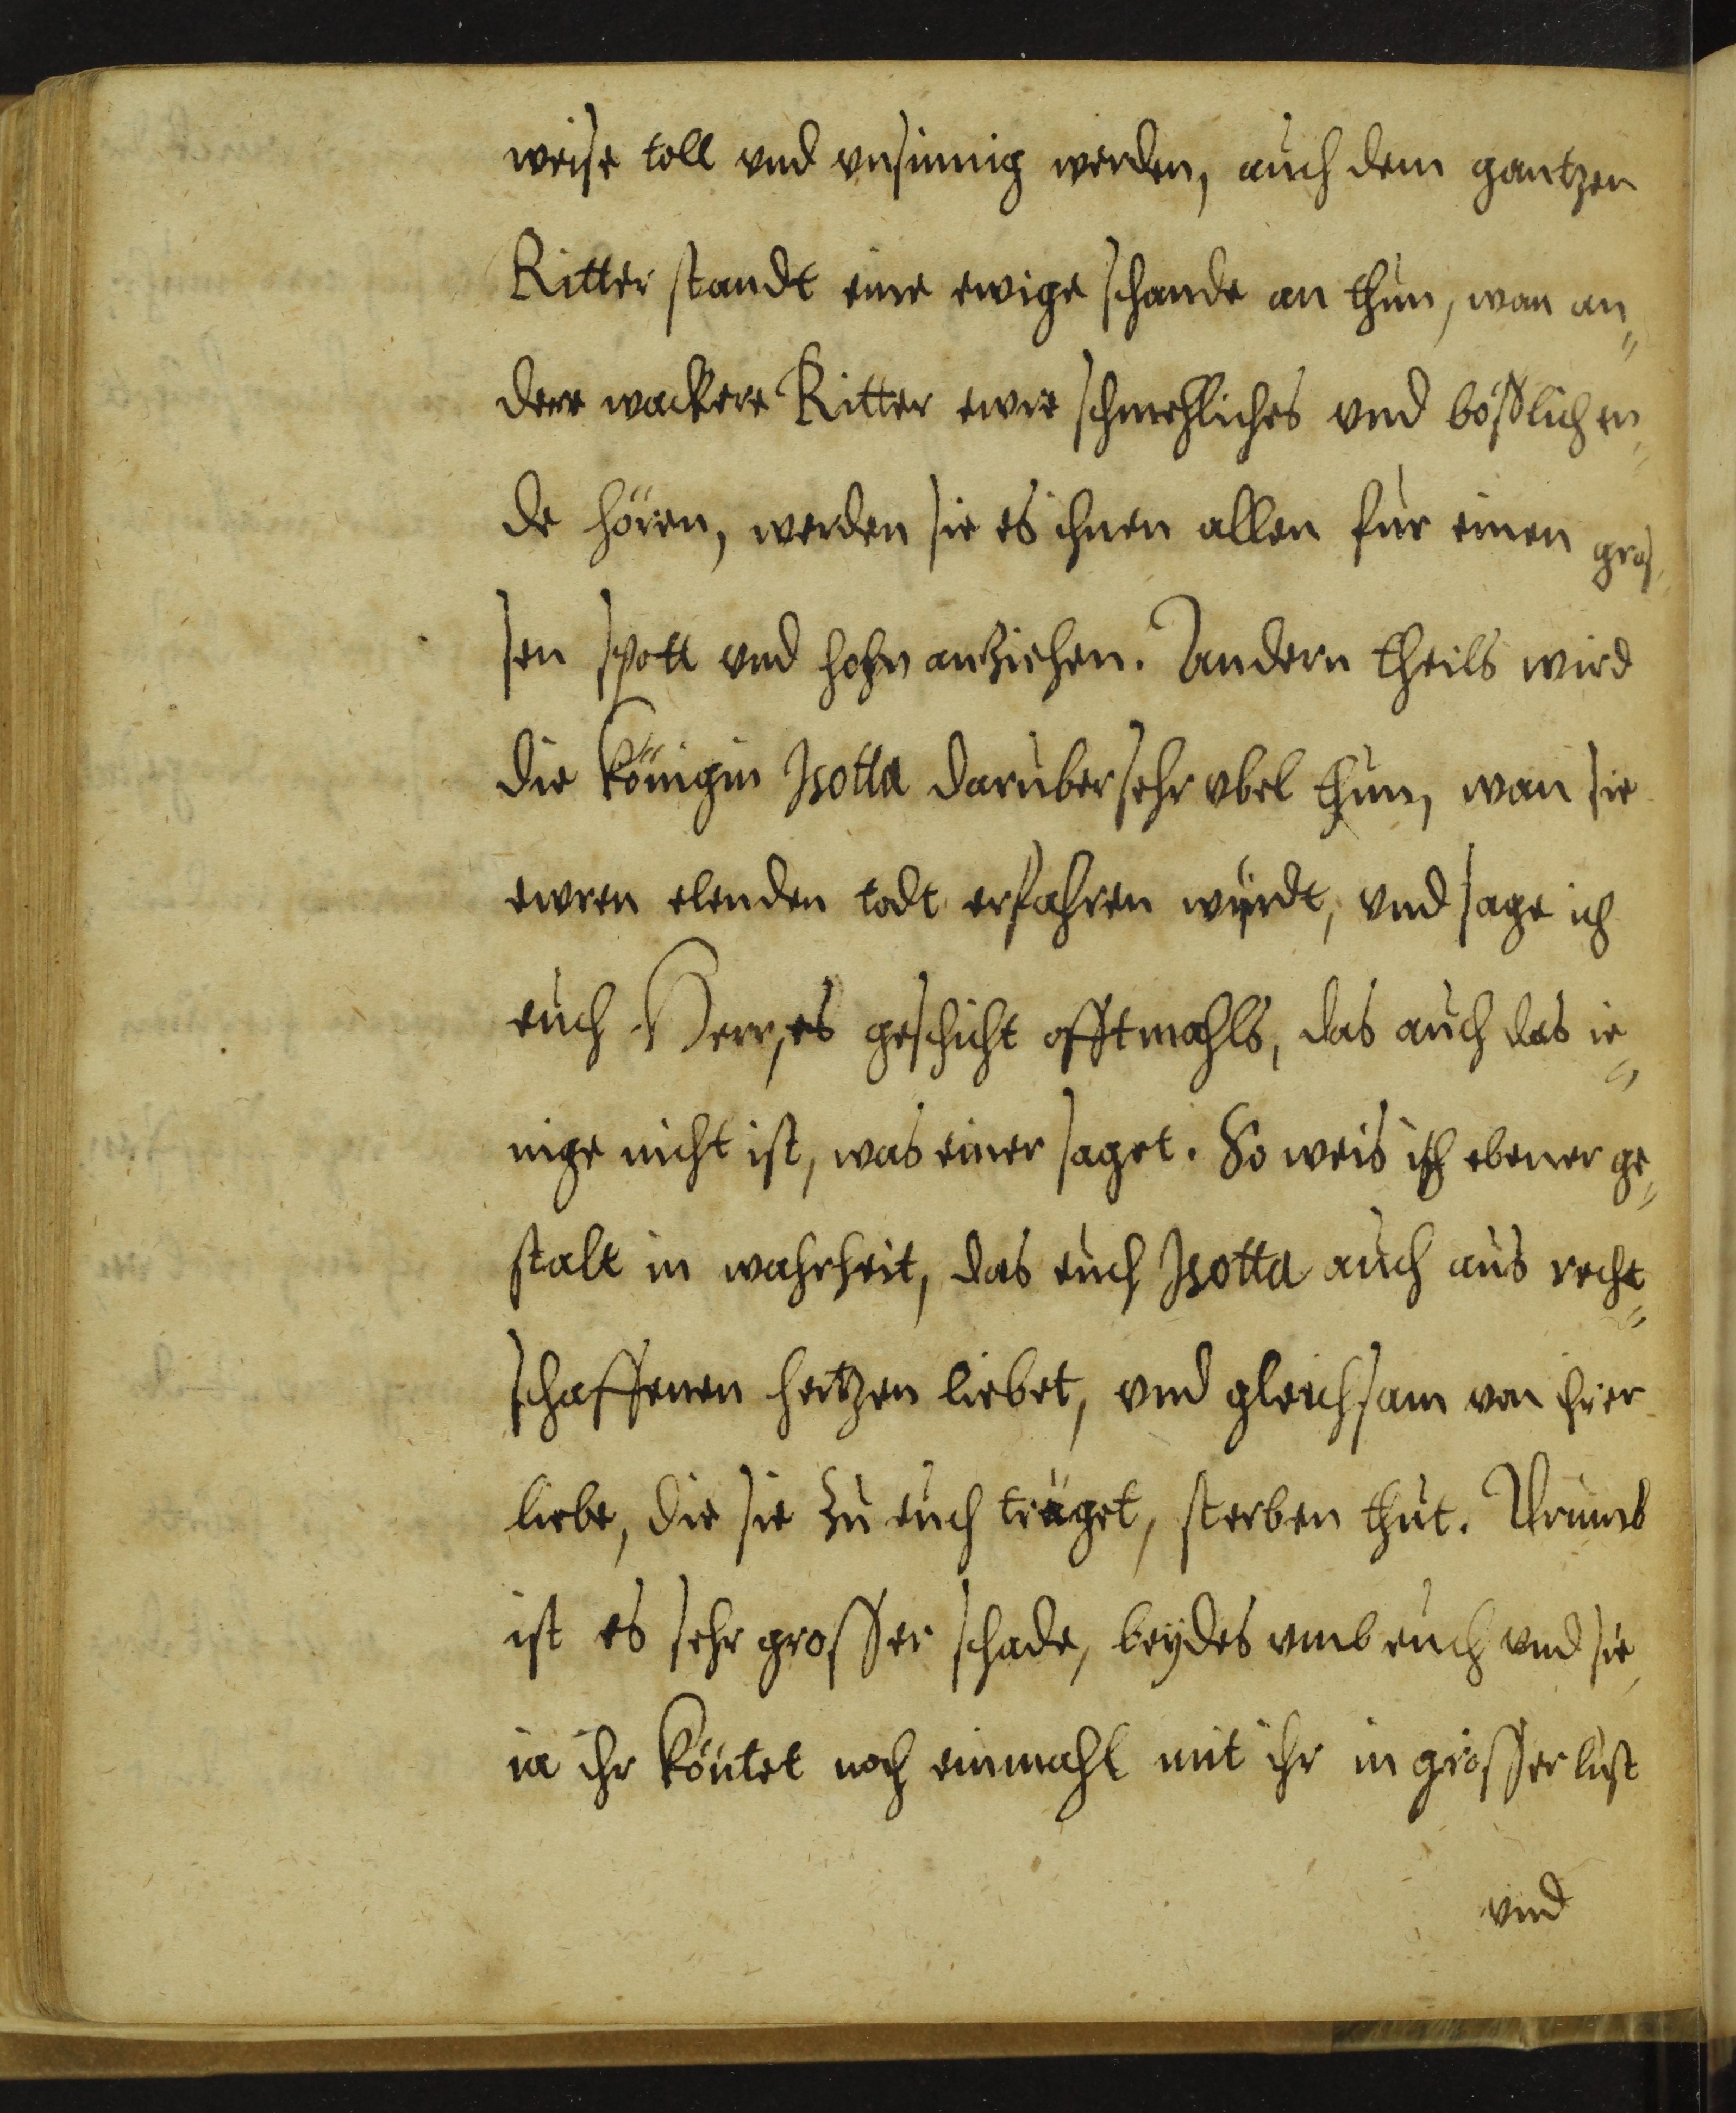 weise toll vnd vnsinnig werden, auch dem gantzen
Ritter standt eine ewige schande an thun, wan an⸗
dere wackere Ritter ewre schmehliches vnd bößlich en⸗
de hören, werden sie es ihnen allen für einen gros⸗
sen spott vnd hohn anziehen. Andern theils wird
die Königin Isotta darüber sehr vbel thun, wan sie
ewren elenden todt erfahren würdt, vnd sage ich
euch Herr, es geschicht offtmahls, das auch das ie⸗
nige nicht ist, was einer saget. So weis ich ebener ge⸗
stalt in wahrheit, das euch Isotta auch aus recht⸗
schaffenen hertzen liebet, vnd gleichsam von ihrer
liebe, die sie zu euch träget, sterben thut. Drumb
ist es sehr grosser schade, beydes vmb euch vnd sie,
ia ihr köntet noch einmahl mit ihr in grosser lust
vnd